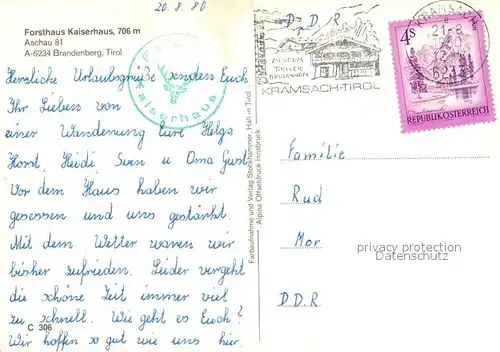 20.8.80
Forsthaus Kaiserhaus, 706 m
Aschau 81
A-6234 Brandenberg, Tirol
Kaiserhaus
Herzliche Urlaubsgrüße senden Euch
Ihr Lieben von
einer Wanderung Eure Helga
Horst, Heidi, Sven u Oma Gust
Vor dem Haus haben wir
gesessen und uns gestärkt.
Mit dem Wetter waren wir
bisher zufrieden. Leider vergeht
die schöne Zeit immer viel
zu schnell. Wie geht es Euch?
Wir hoffen so gut wie uns hier.
C 306
Farbaufnahme und Verlag Stockhammer, Hall in Tirol
Alpina Offsetdruck Innsbruck
D.D.R
MUSEUM
TIROLER
BAUERNHÖFE
KRAMSACH-TIROL
KRAMSACH
21.-8.
6233
4S
REPUBLIK ÖSTERREICH
Familie
Rud
Mor
D.D.R
privacy protection
Datenschutz